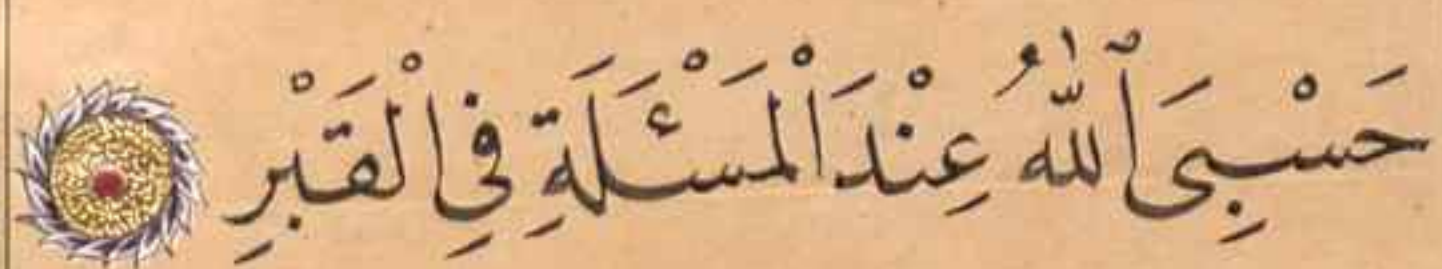 حَسْبِىَ ٱللّٰهُ عِنْدَ الْمَسْئَلَةِ فِى الْقَبْرِ